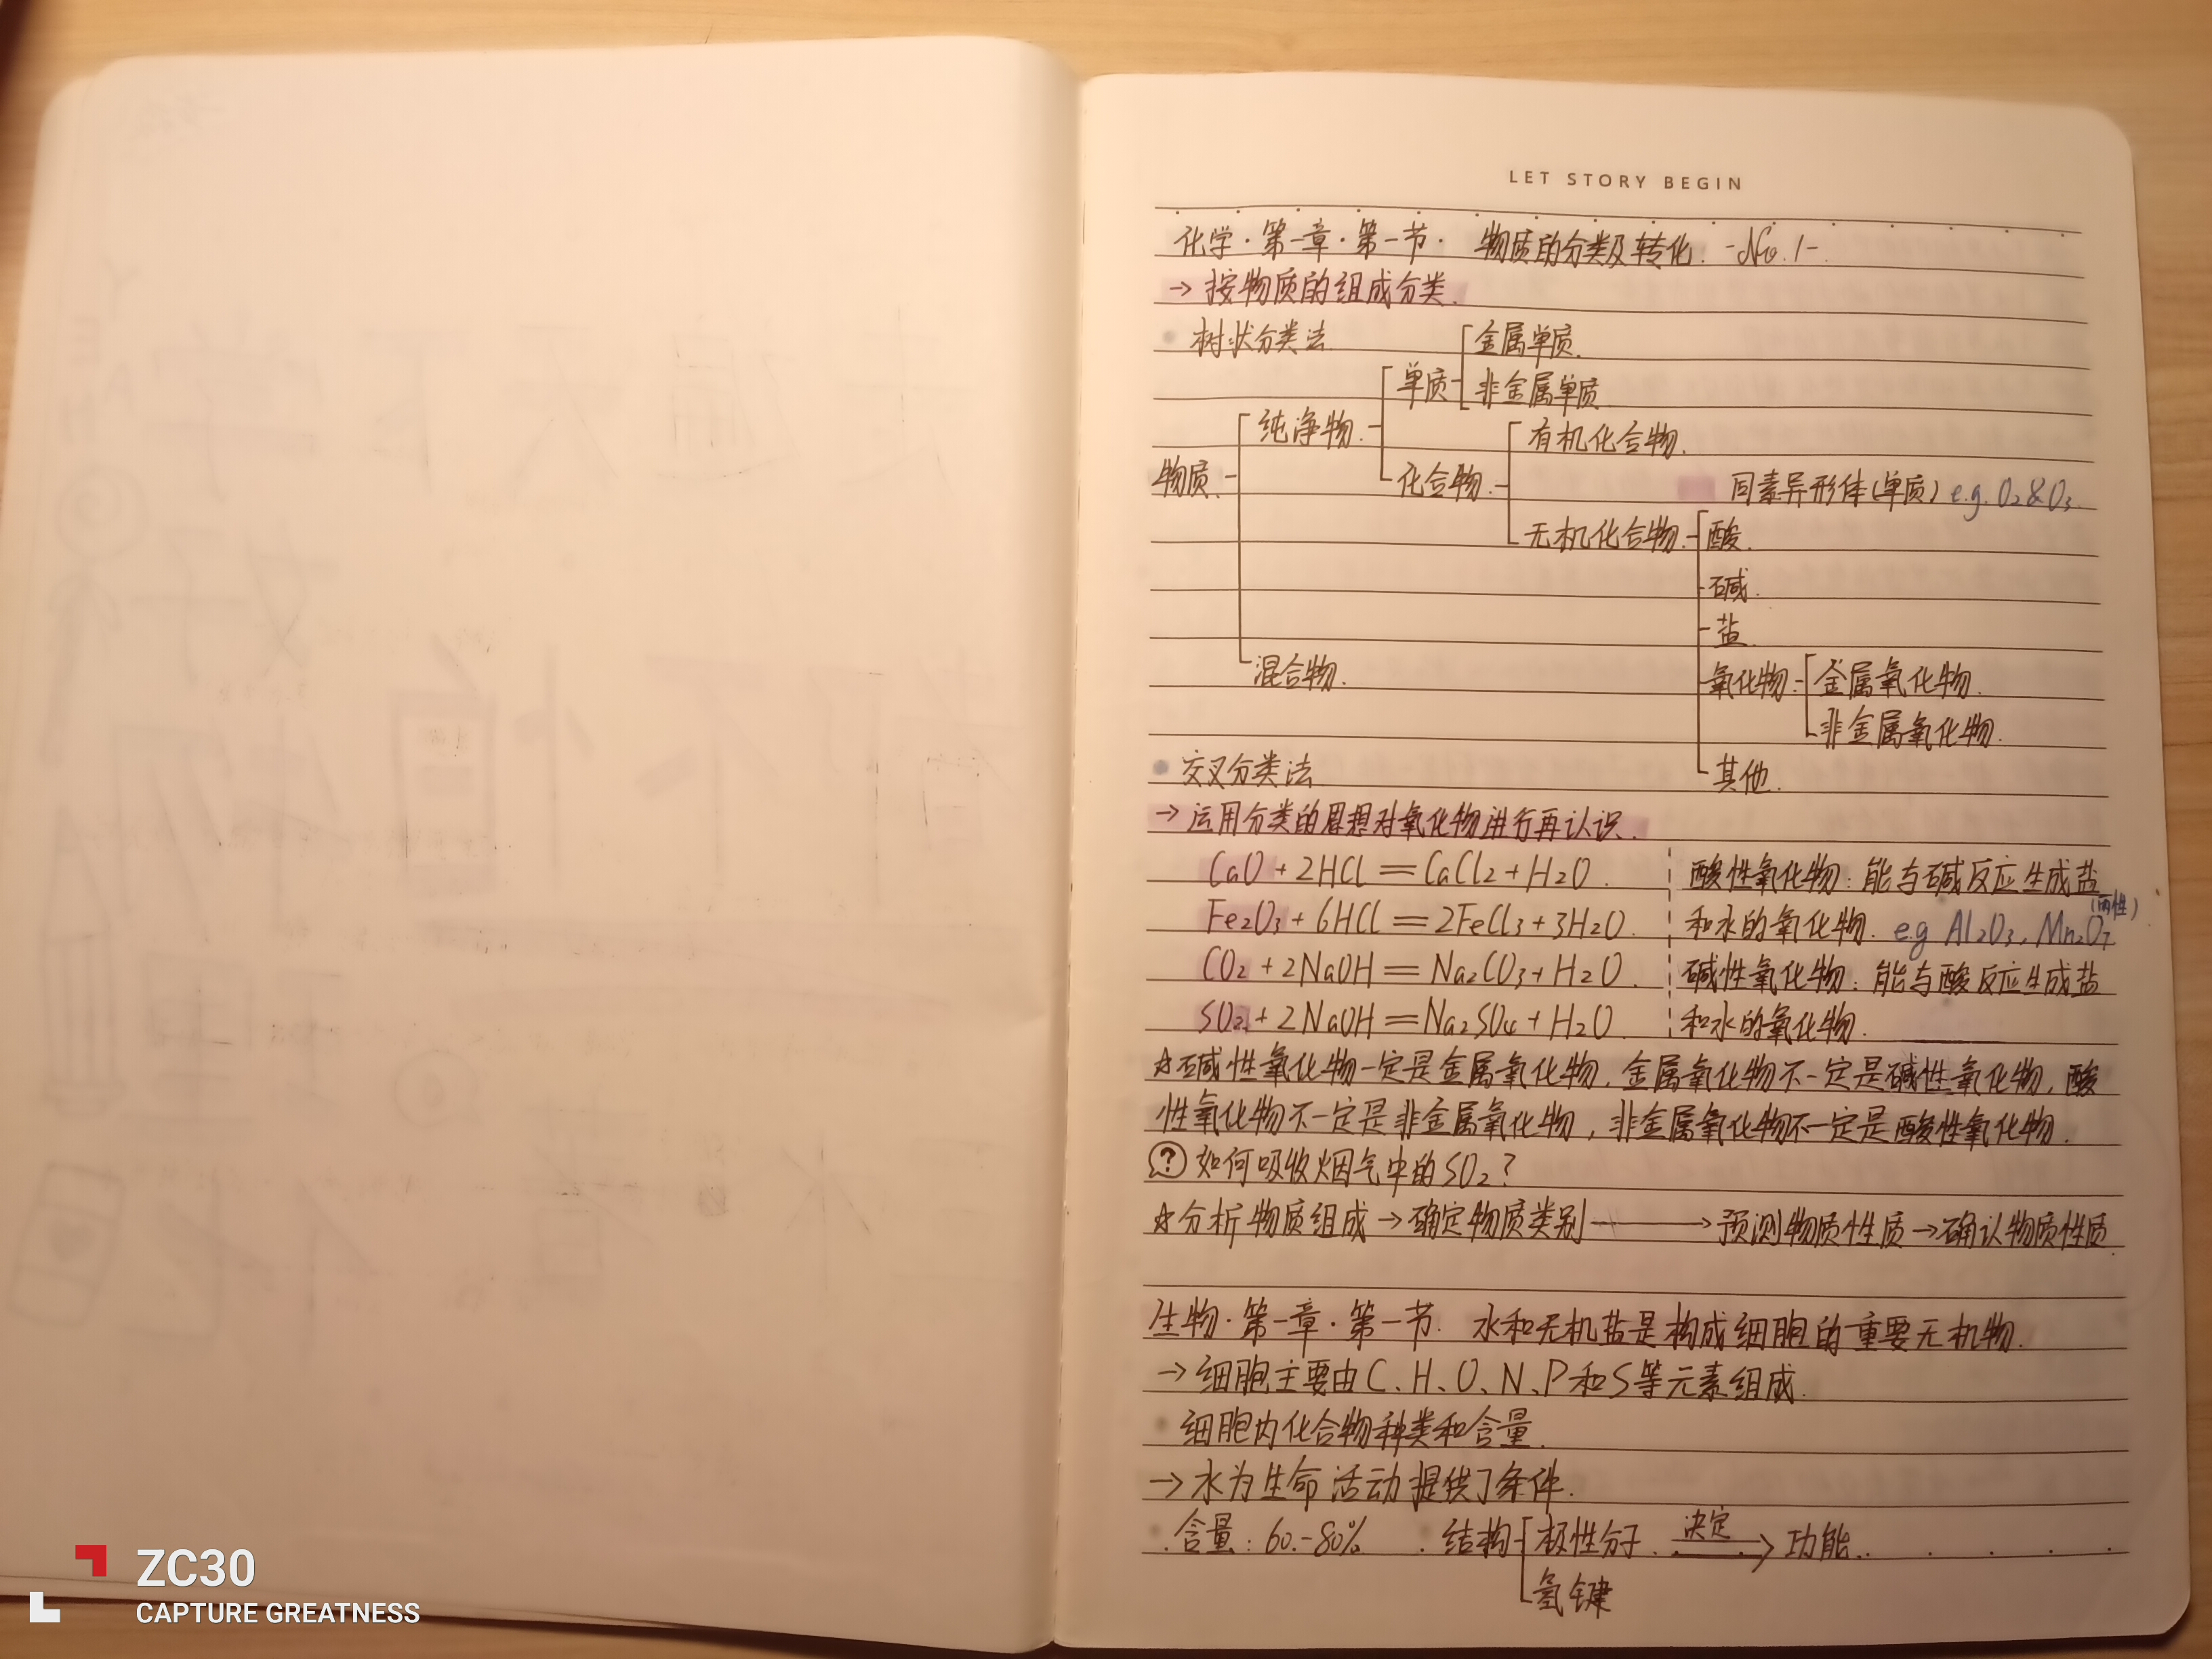 LET STORY BEGIN
化学·第一章·第一节· 物质的分类及转化. -No.1-.
→按物质的组成分类.
树状分类法.
金属单质.
单质
非金属单质
纯净物.
有机化合物.
物质.
化合物.
同素异形体(单质) e.g. O₂&O₃.
无机化合物.
酸.
碱.
盐.
混合物.
氧化物.
金属氧化物.
非金属氧化物.
其他.
交叉分类法
→运用分类的思想对氧化物进行再认识.
CaO+2HCl=CaCl₂+H₂O. 酸性氧化物:能与碱反应生成盐
Fe₂O₃+6HCl=2FeCl₃+3H₂O. 和水的氧化物. e.g Al₂O₃, Mn₂O₇ (两性)
CO₂+2NaOH=Na₂CO₃+H₂O. 碱性氧化物:能与酸反应生成盐
SO₂+2NaOH=Na₂SO₄+H₂O. 和水的氧化物.
☆碱性氧化物一定是金属氧化物,金属氧化物不一定是碱性氧化物,酸
性氧化物不一定是非金属氧化物,非金属氧化物不一定是酸性氧化物.
? 如何吸收烟气中的SO₂?
☆分析物质组成→确定物质类别→预测物质性质→确认物质性质.
生物·第一章·第一节. 水和无机盐是构成细胞的重要无机物.
→细胞主要由C、H、O、N、P和S等元素组成.
细胞内化合物种类和含量.
→水为生命活动提供了条件.
含量:60-80% 结构 极性分子 决定 功能.
氢键
ZC30
CAPTURE GREATNESS